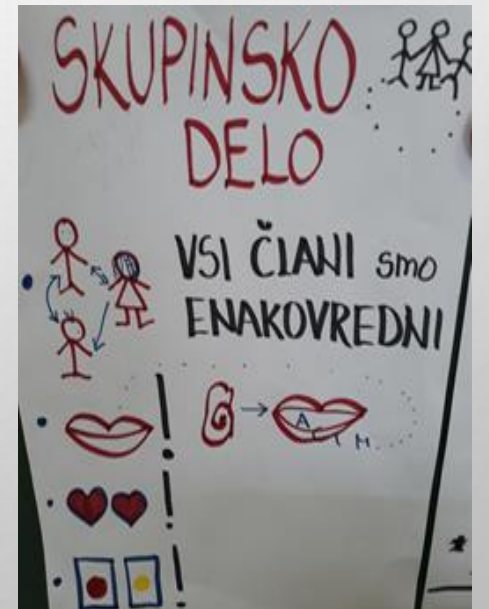 SKUPINSKO
DELO
VSI ČLANI smo
ENAKOVREDNI
!
!
!